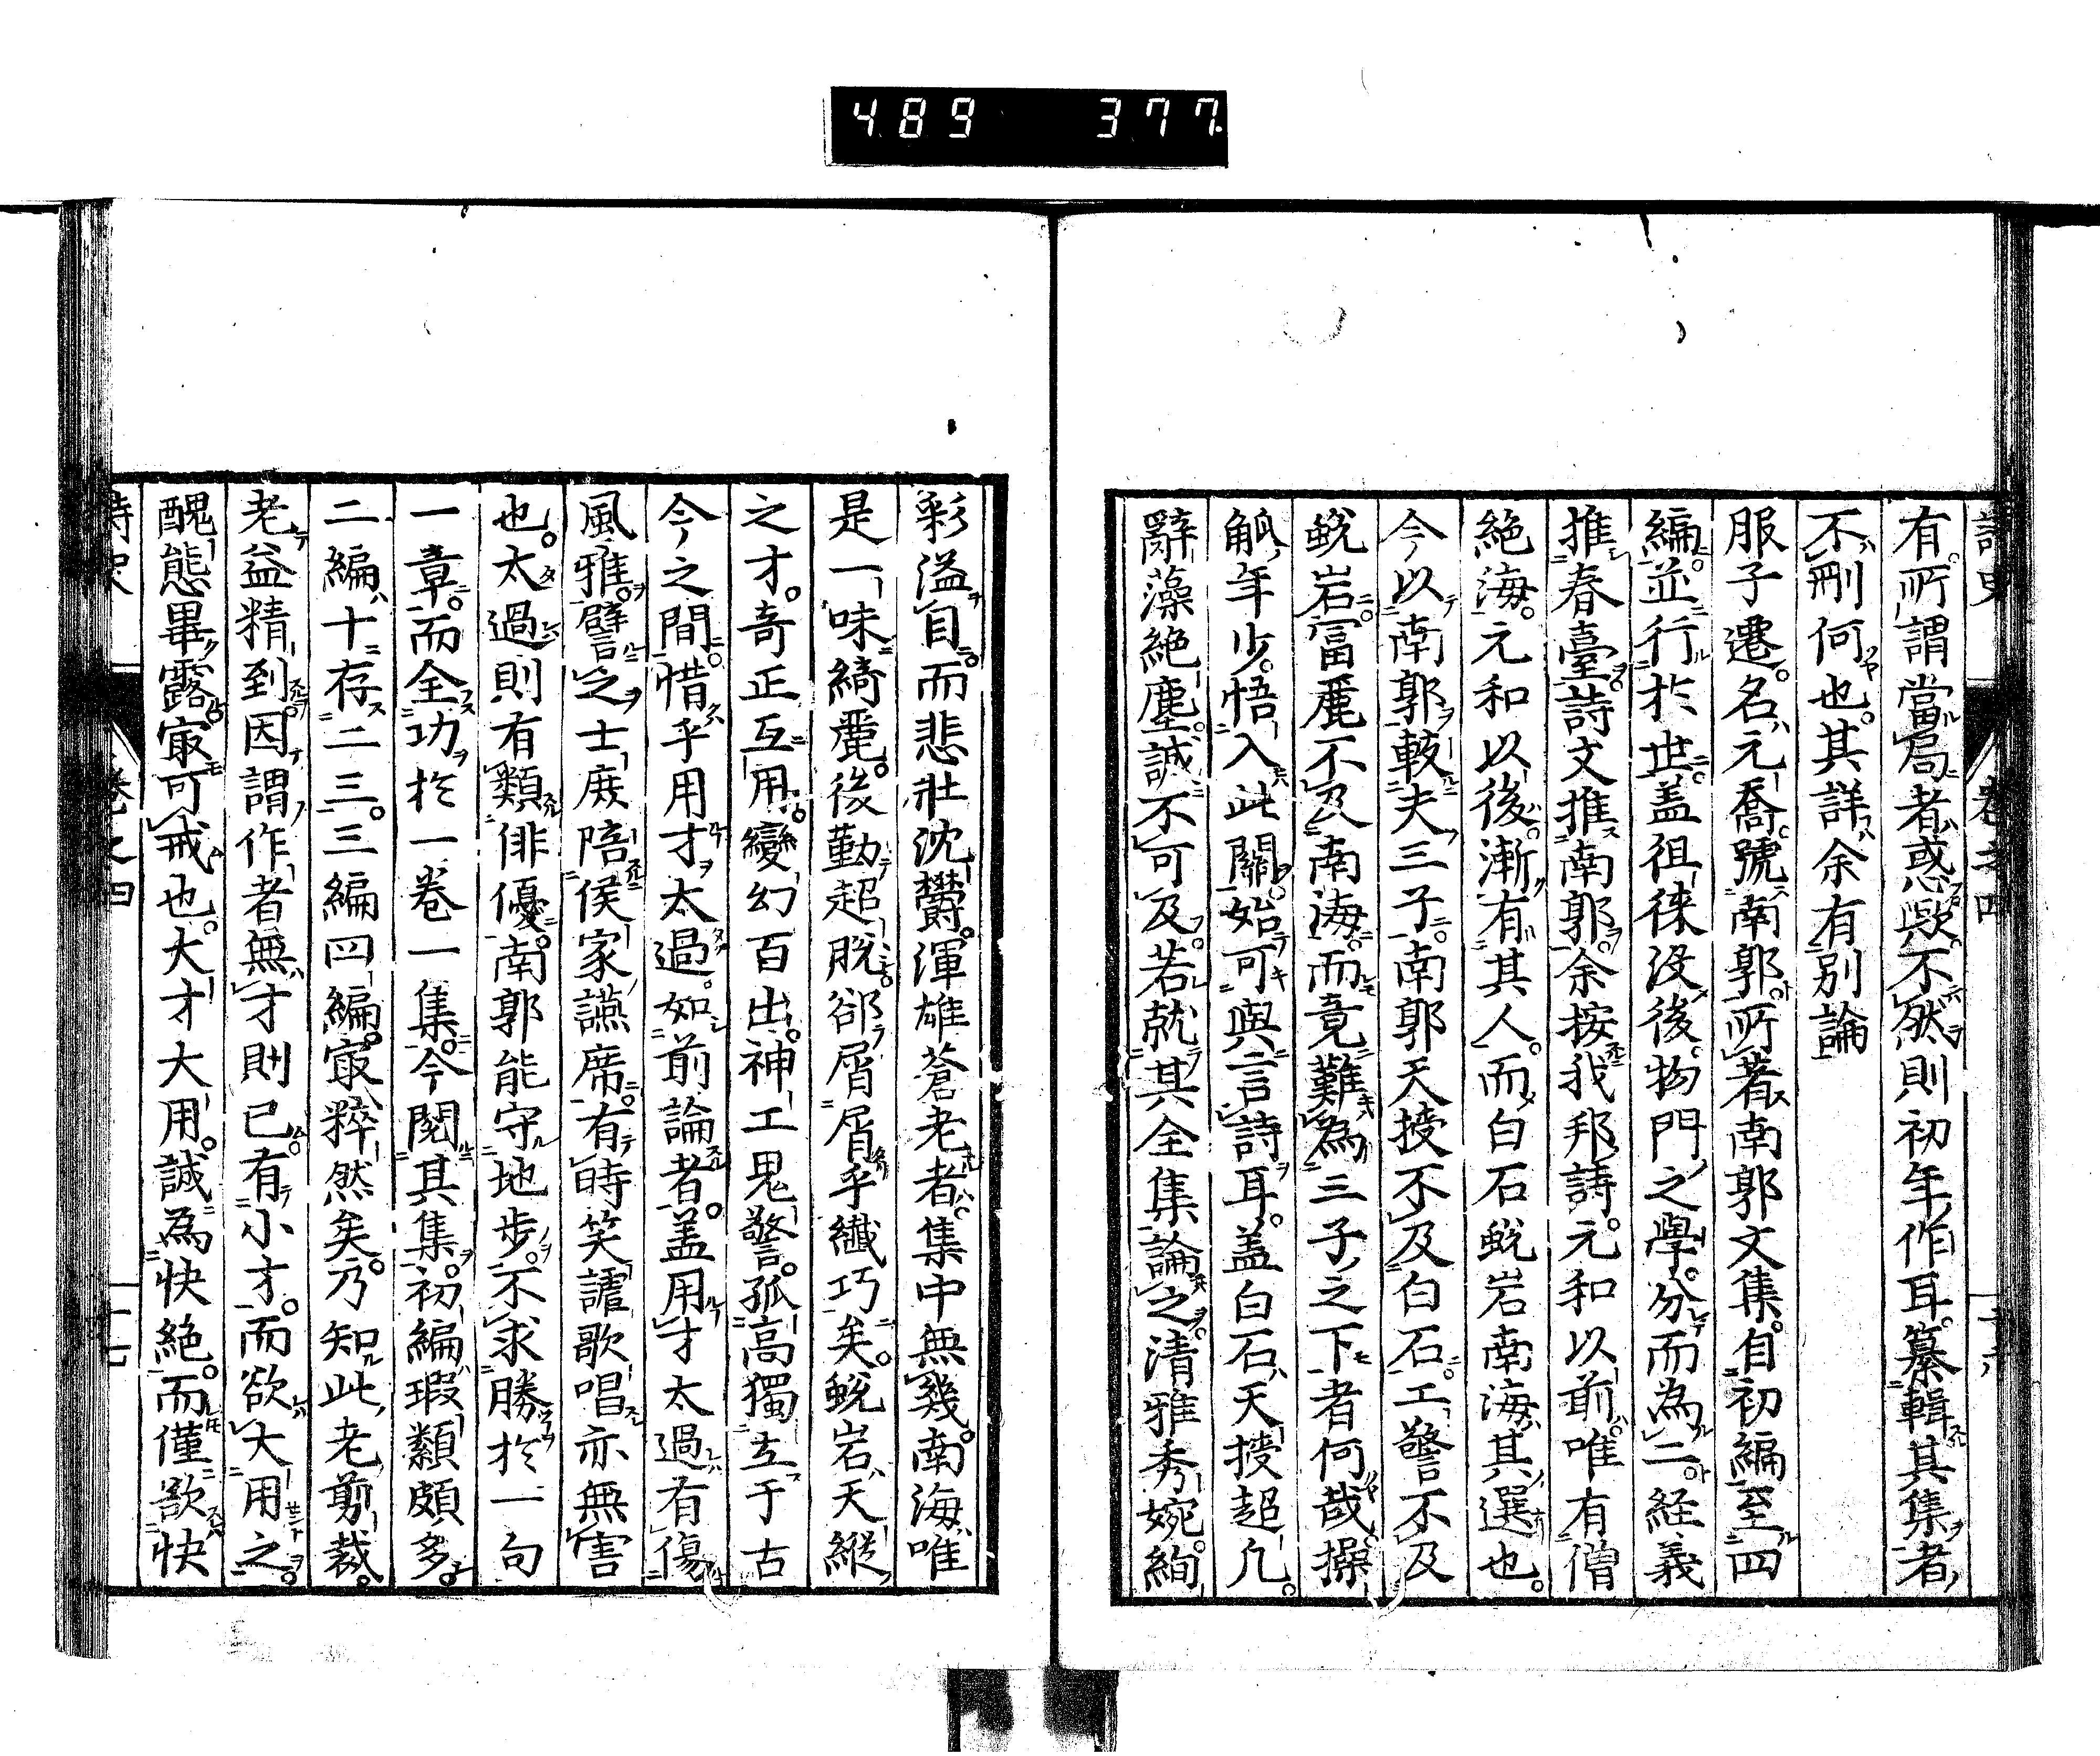 489 377
有所謂當局者惑歟不然則初年作耳纂輯其集者
不刪何也其詳余有別論
服子遷名元喬號南郭所著南郭文集自初編至四
編並行於世盖徂徠沒後物門之學分而為二経義
推春臺詩文推南郭余按我邦詩元和以前唯有僧
絶海元和以後漸有其人而白石蛻岩南海其選也
今以南郭較夫三子南郭天授不及白石工警不及
蛻岩富麗不及南海而竟難為三子之下者何哉操
觚年少悟入此關始可與言詩耳盖白石天授超凡
辭藻絶塵誠不可及若就其全集論之清雅秀婉絢
彩溢目而悲壯沈欝渾雄蒼老者集中無幾南海唯
是一味綺麗後勤超脫郤屑屑乎纖巧矣蛻岩天縱
之才奇正互用變幻百出神工鬼警孤高獨立于古
今之間惜乎用才太過如前論者盖用才太過有傷
風雅譬之士庶陪侯家讌席有時笑謔歌唱亦無害
也太過則有類俳優南郭能守地步不求勝於一句
一章而全功於一卷一集今閱其集初編瑕纇頗多
二編十存二三三編四編㝡粹然矣乃知此老剪裁
老益精到因謂作者無才則已有小才而欲大用之
醜態畢露㝡可戒也大才大用誠為快絶而僅欲快
詩史 卷之四